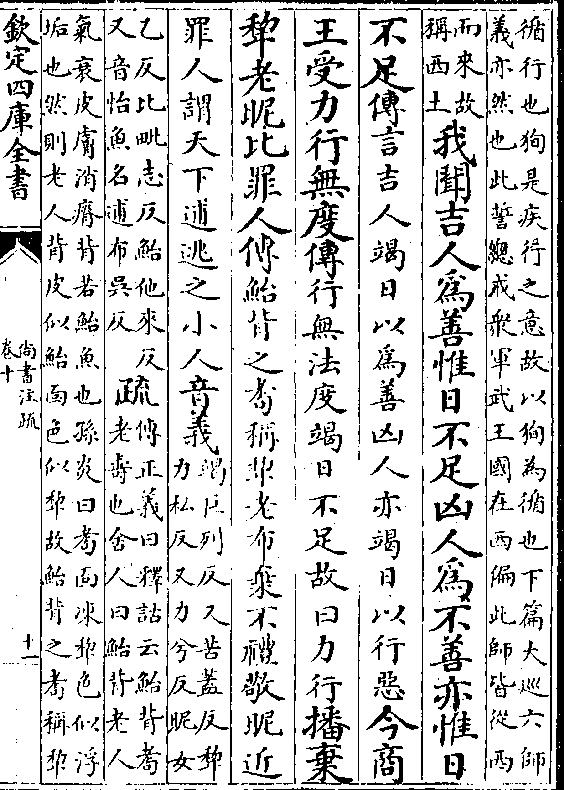 循行也狥是疾行之意故以狥為循也下篇大巡六師
義亦然也此誓總戒衆軍武王國在西偏此師皆從西
而來故
稱西土
我聞吉人為善惟日不足凶人為不善亦惟日
不足傳言吉人竭日以為善凶人亦竭日以行惡今商
王受力行無度傳行無法度竭日不足故曰力行播棄
犂老昵比罪人傳鮐背之耇稱犂老布棄不禮敬昵近
罪人謂天下逋逃之小人音義
竭巨列反又苦蓋反犂
力私反又力兮反昵女
乙反比毗志反鮐他來反
又音怡魚名逋布吳反
疏
傳正義曰釋詁云鮐背耇
老壽也舍人曰鮐背老人
氣衰皮膚消瘠背若鮐魚也孫炎曰耇面凍犂色似浮
垢也然則老人背皮似鮐面色似犂故鮐背之耇稱犂
欽定四庫全書
尚書注疏
卷十
十一